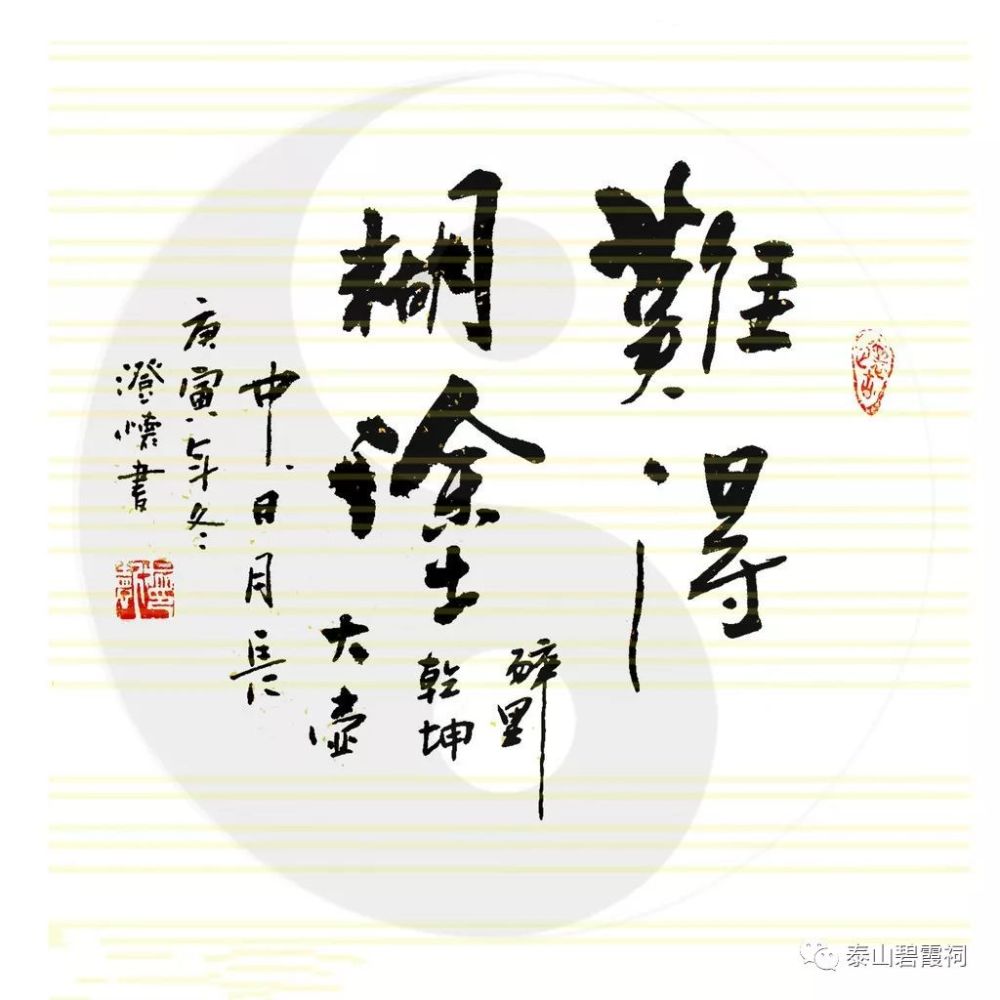 難得
糊塗
醉里
乾坤
大壺
中日月長
庚寅年冬
澄懷書
泰山碧霞祠